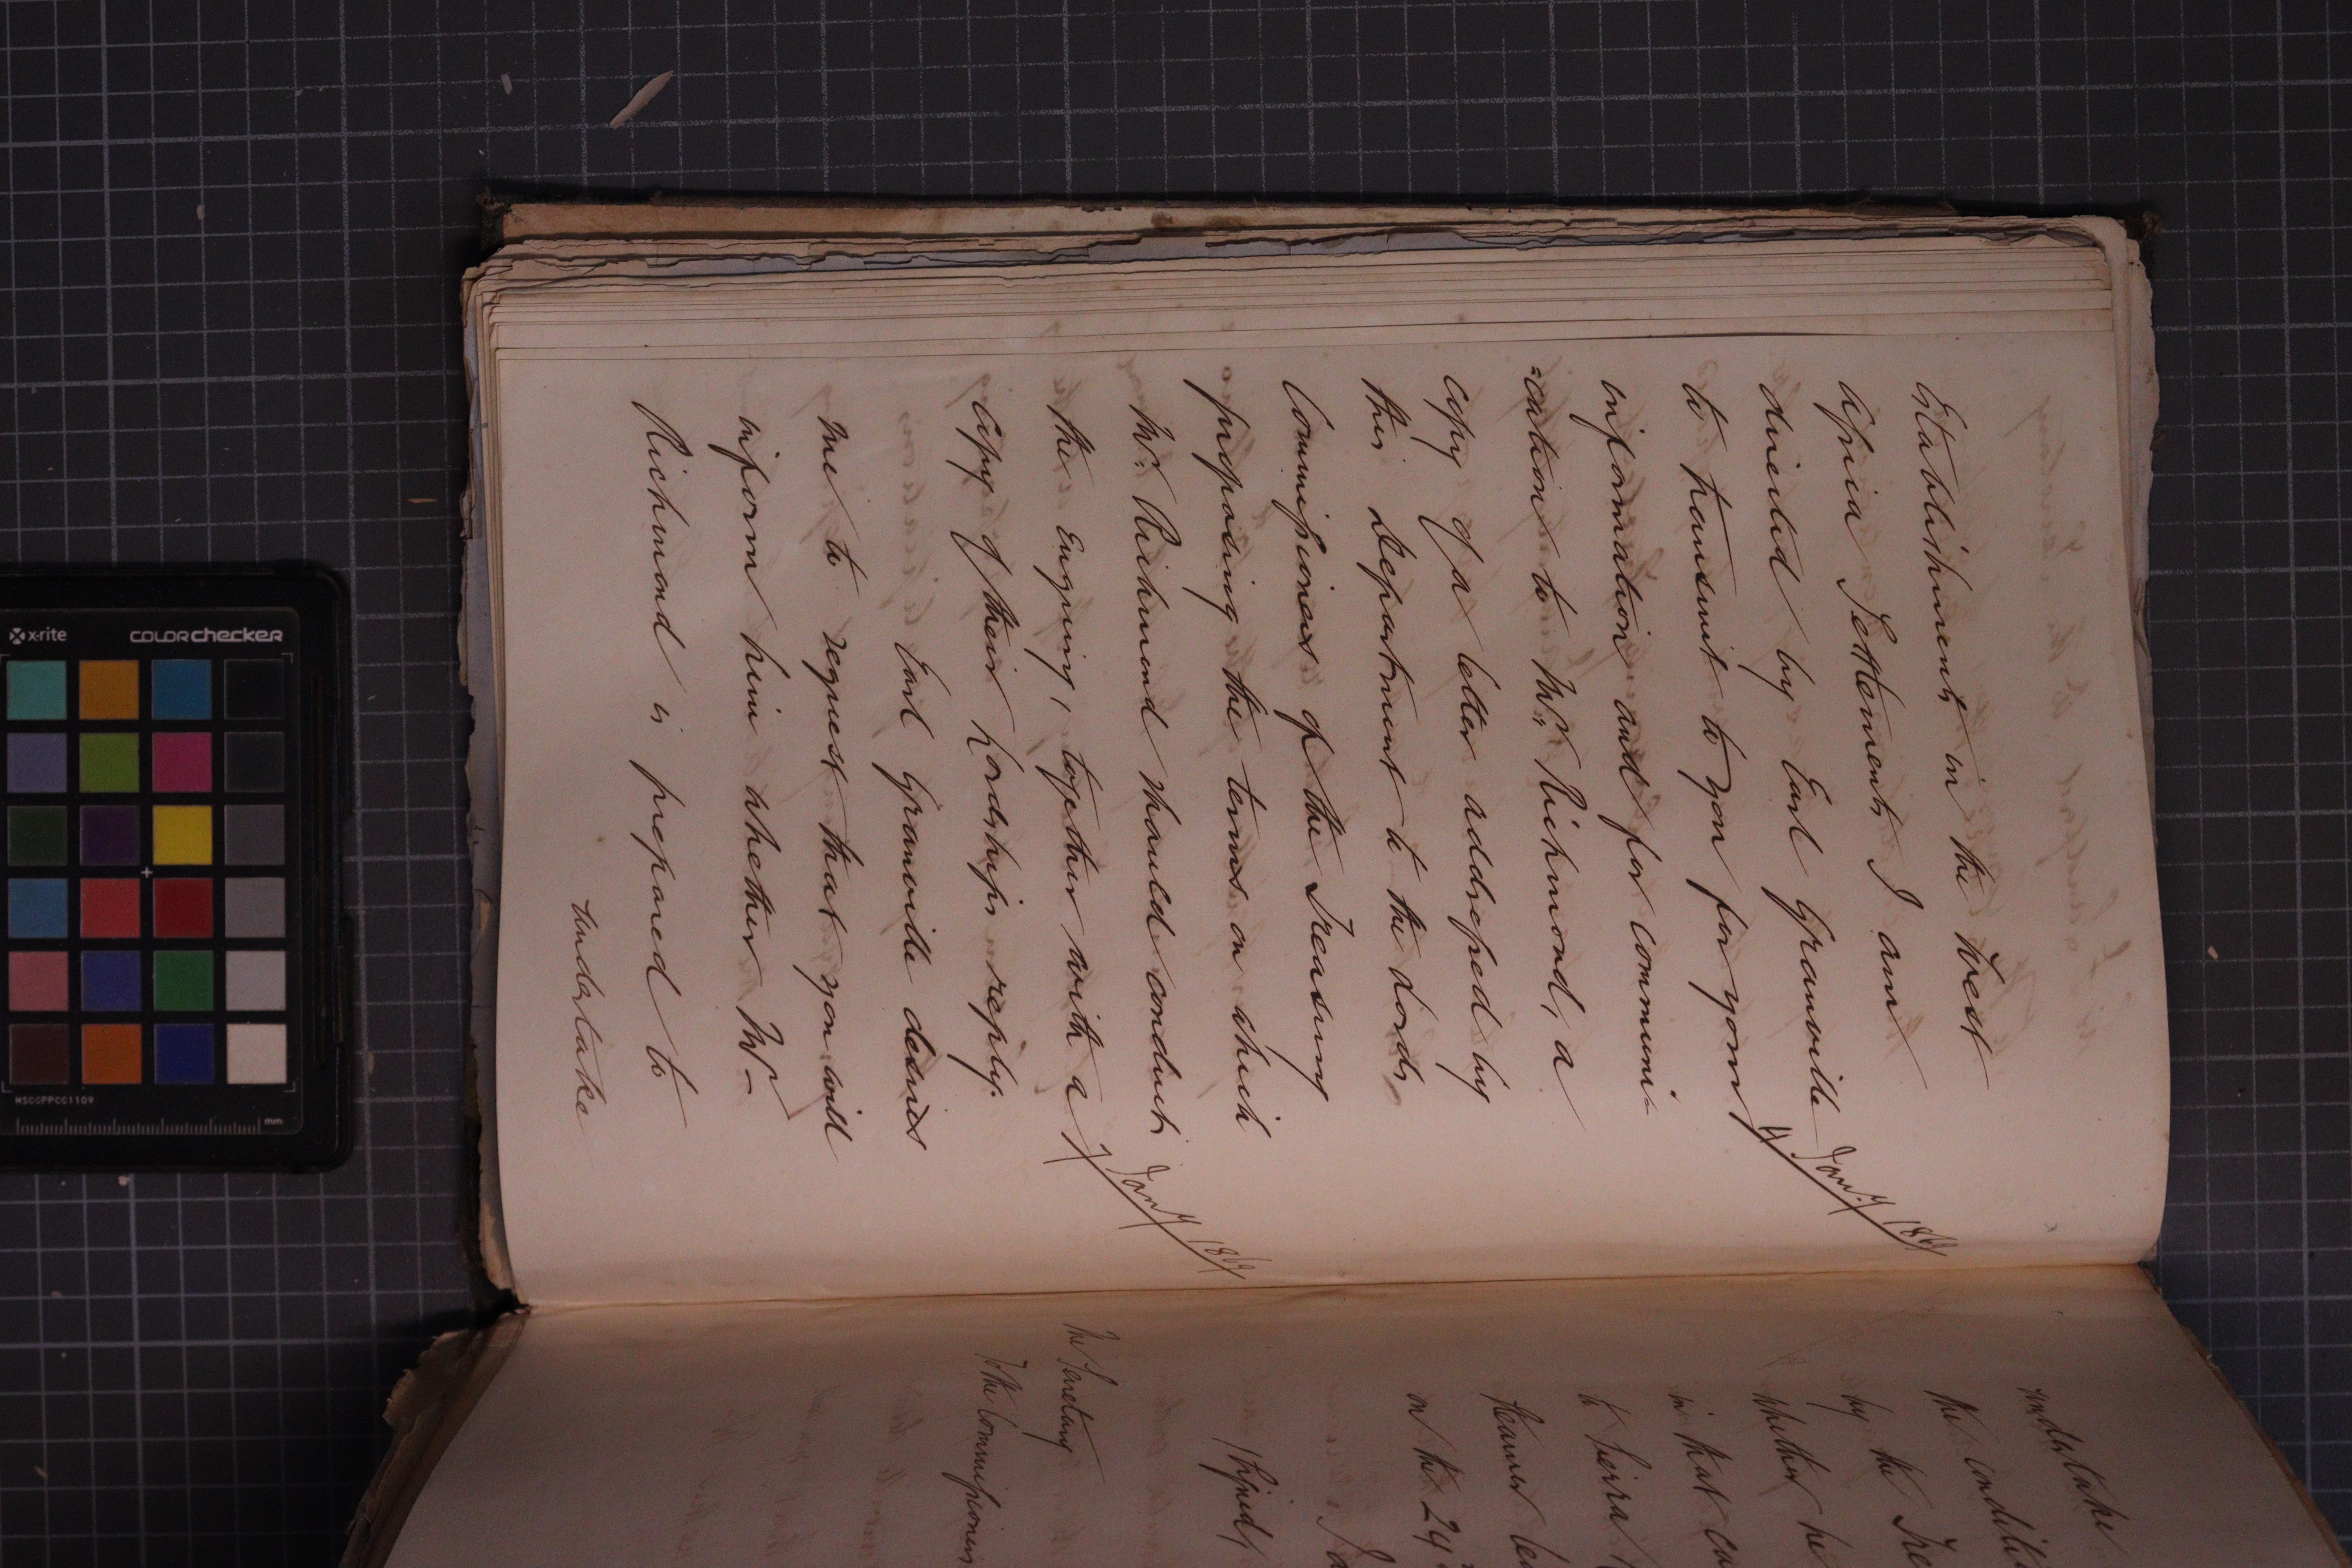 Establishments in the West
Africa Settlements I am
directed by Earl Granville
to transmit to you for your
4 Jany 1869
information and for communi-
=cation to Mr. Richmond, a
copy of a letter addressed by
this Department to the Lords
Commissioners of the Treasury
proposing the terms on which
Mr. Richmond should conduct
the Enquiry, together with a
7 Jany 1869
Copy of their Lordships reply.
Earl Granville desires
me to request that you will
inform him whether Mr
Richmond is prepared to
undertake
undertake
the condit
by the Tre
whether he
in that ca
to Sierra
Steamer le
on the 24
(Signed)
The Secretary
The Commissioners
x-rite
colorchecker
MSCCPPCC1109
mm